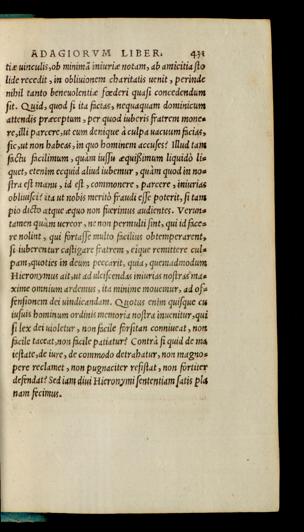 ADAGIORVM LIBER. 431
tiæ uinculis, ob minimã iniuriæ notam, ab amicitia sto
lide recedit, in obliuionem charitatis uenit, perinde
nihil tanto beneuolentiæ fœderi quasi concedendum
sit. Quid, quod si ita facias, nequaquam dominicum
attendis præceptum, per quod iuberis fratrem mone=
re, illi parcere, ut eum denique à culpa uacuum facias,
sic, ut non habeas, in quo hominem accuses? Illud tam
factu facilimum, quàm iussu æquißimum liquidò li=
quet, etenim ecquid aliud iubemur, quàm quod in no=
stra est manu, id est, commonere, parcere, iniurias
obliuisci? ita ut nobis meritò fraudi esse poterit, si tam
pio dicto atque æquo non fuerimus audientes. Verun=
tamen quàm uereor, ne non permulti sint, qui id face=
re nolint, qui fortasse multo facilius obtemperarent,
si iuberentur castigare fratrem, eique remittere cul=
pam, quoties in deum peccarit, quia, quemadmodum
Hieronymus ait, ut ad ulciscendas iniurias nostras ma=
xime omnium ardemus, ita minime mouemur, ad of=
fensionem dei uindicandam. Quotus enim quisque cu
iusuis hominum ordinis memoria nostra inuenitur, qui
si lex dei uioletur, non facile forsitan conniueat, non
facile taceat, non facile patiatur? Contrà si quid de ma
iestate, de iure, de commodo detrahatur, non magno=
pere reclamet, non pugnaciter resistat, non fortiter
defendat? Sed iam diui Hieronymi sententiam satis pla
nam fecimus.